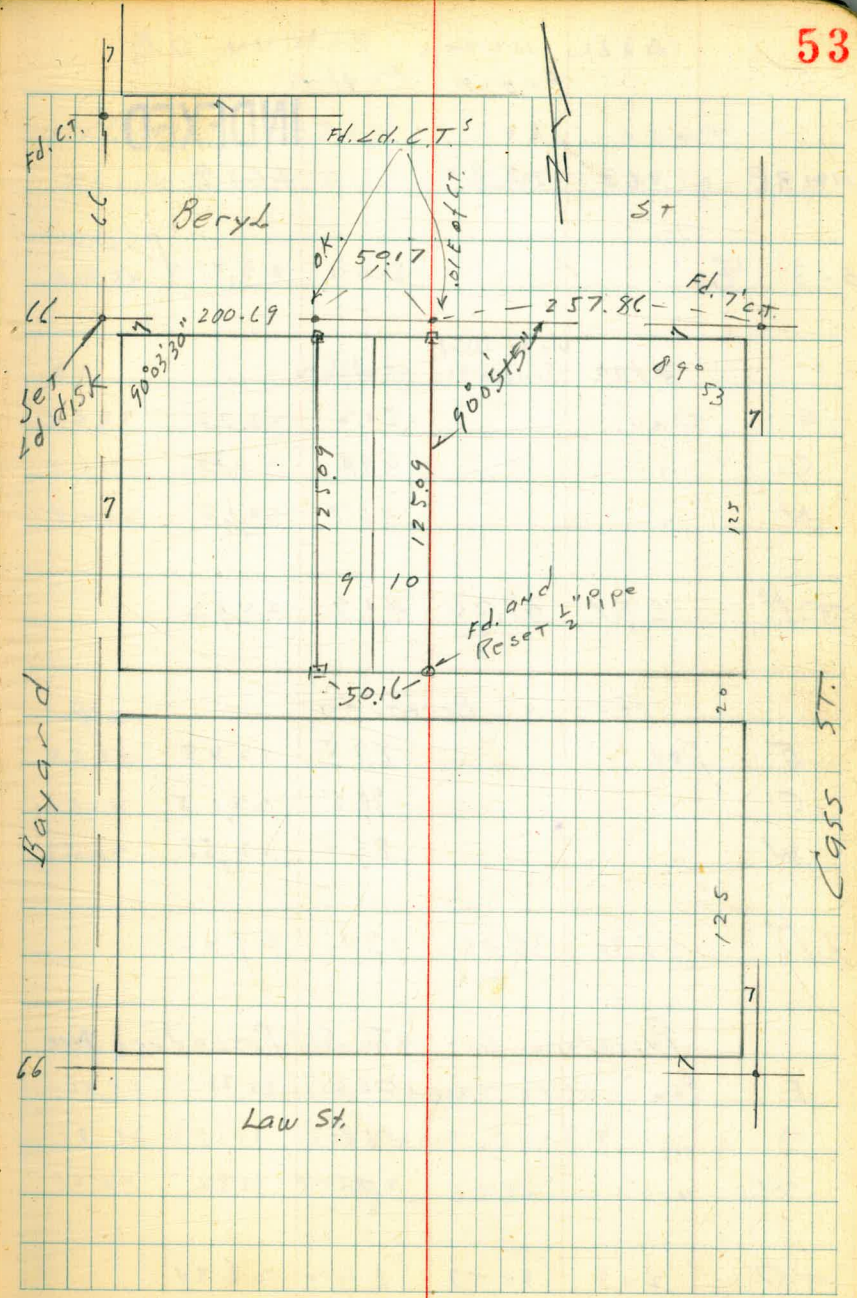 53
7
7
Fd. C.T.
Fd. Ld. C.T.s
N
66
Beryl
St
O.K.
50.17
.01 E of C.T.
66
7
200.69
257.86
Fd. 7' C.T.
7
Set
Ld disk
90°03'30"
90°05'15"
89°53
7
7
125.09
125.09
125
9
10
Fd. and
Reset 1/2" Pipe
50.16
20
Bayard
Cass ST.
125
7
66
7
Law St.